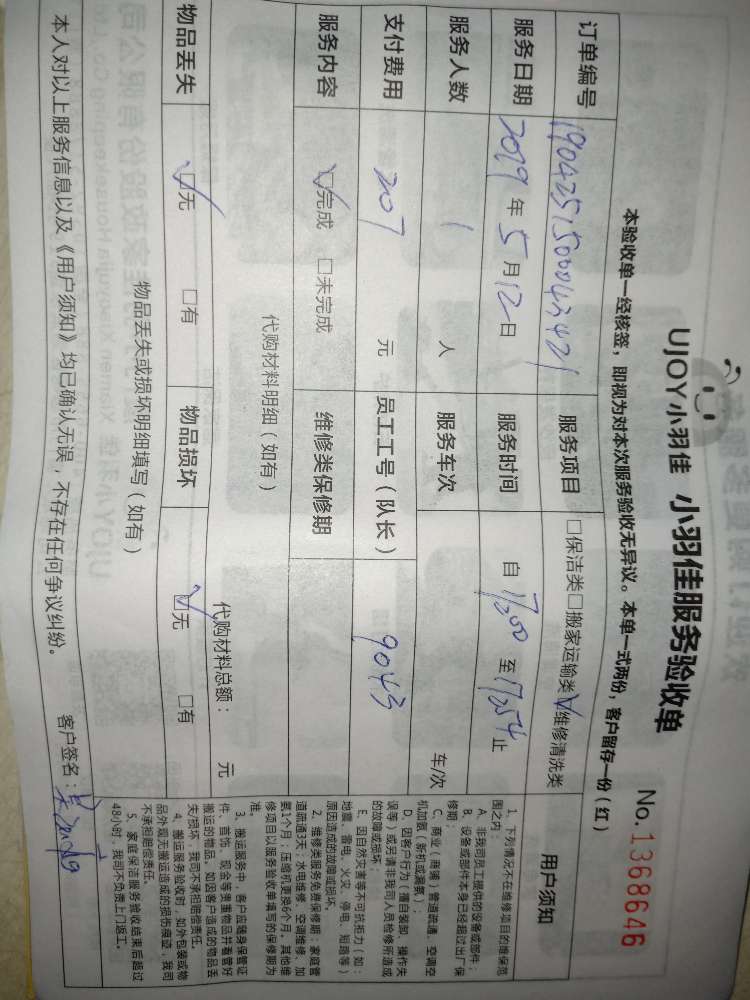 UJOY小羽佳 小羽佳服务验收单
No.1368646
本验收单一经核签，即视为对本次服务验收无异议。本单一式两份，客户留存一份（红）
订单编号 服务项目 □保洁类□搬家运输类☑维修清洗类
服务日期 2019年5月12日 服务时间 自 至 止
服务人数 1 人 服务车次 车/次
支付费用 207 元 员工工号（队长） 9043
服务内容 ☑完成 □未完成 维修类保修期
代购材料明细（如有）
代购材料总额： 元
物品丢失 ☑无 □有 物品损坏 ☑无 □有
物品丢失或损坏明细填写（如有）
本人对以上服务信息以及《用户须知》均已确认无误，不存在任何争议纠纷。
客户签名：
用户须知
1、下列情况不在维修项目的维保范
围之内：
A、非我司员工提供的设备或部件；
B、设备或部件本身已经超过出厂保
修期；
C、商业（商铺）管道疏通、空调空
机加氟（新机或漏氟）；
D、因客户行为（擅自装卸、操作失
误等）或另请非我司人员检修所造成
的故障或损坏；
E、因自然灾害等不可抗拒力（如：
地震、雷电、火灾、停电、短路等）
原因造成的故障或损坏。
2、维修类服务免费保修期：家庭管
道疏通3天；水电维修、空调维修、加
氟1个月；压缩机更换6个月。其他维
修项目以服务验收单填写的保修期为
准。
3、搬运服务中，客户应随身保管证
件、首饰、现金等贵重物品并看管好
搬运的物品。如因客户造成的物品丢
失/损坏，我司不承担赔偿责任。
4、搬运服务验收时，如外包装或物
品外观无搬运造成的损伤痕迹，我司
不承担赔偿责任。
5、家庭保洁服务验收结束后超过
48小时，我司不负责上门返工。